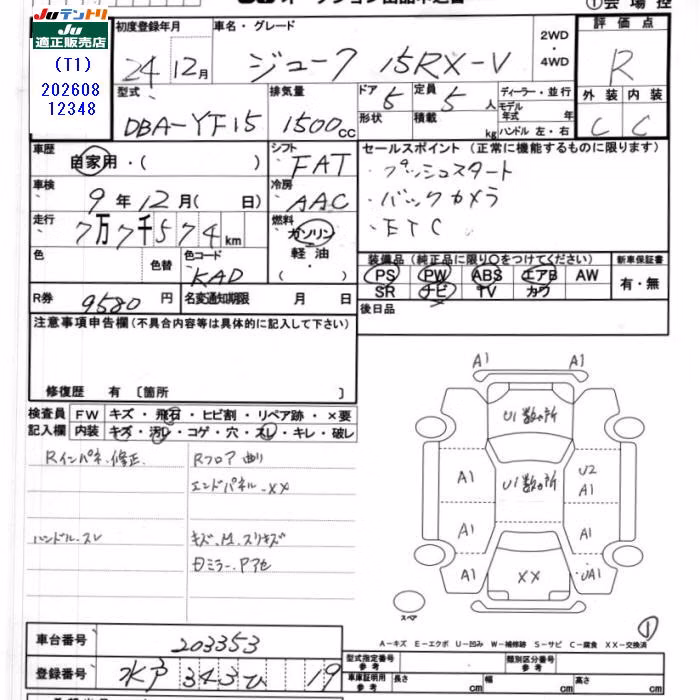 JUテントリ
JU
適正販売店
(T1)
202608
12348
①会場控
初度登録年月
車名・グレード
評価点
24 12月
ジューク 15RX-V
2WD
・
4WD
R
型式
排気量
ドア 5
定員 5 人
ディーラー・並行
外装 内装
DBA-YF15
1500cc
形状
積載 kg
モデル年式 年
ハンドル 左・右
C C
車歴
自家用・( )
シフト
FAT
セールスポイント(正常に機能するものに限ります)
・プッシュスタート
車検
9年12月( 日)
冷房
AAC
・バックカメラ
・ETC
走行
7万7千574km
燃料
ガソリン
・
軽油
・
( )
色
色替
色コード
KAD
装備品(純正品に限り○をつけてください)
新車保証書
PS PW ABS エアB AW
SR ナビ TV カワ
有・無
R券 9580円
名変通知期限 月 日
後日品
注意事項申告欄(不具合内容等は具体的に記入して下さい)
修復歴 有〔箇所 〕
検査員 FW キズ・飛石・ヒビ割・リペア跡・×要
記入欄 内装 キズ・汚レ・コゲ・穴・スレ・キレ・破レ
Rインパネ.修正.
Rフロア 曲り
エンドパネル.XX
ハンドル.スレ
キズ.凹.スリキズ
A1 A1
U1数ヵ所
A1 U1数ヵ所 U2 A1
A1 A1
A1 XX UA1
スペア
①
A-キズ E-エクボ U-凹み W-補修跡 S-サビ C-腐食 XX-交換済
車台番号 203353
登録番号 水戸 343 ひ 19
型式指定番号
参考
類別区分番号
参考
車庫証明用
参考
長さ cm
幅 cm
高さ cm